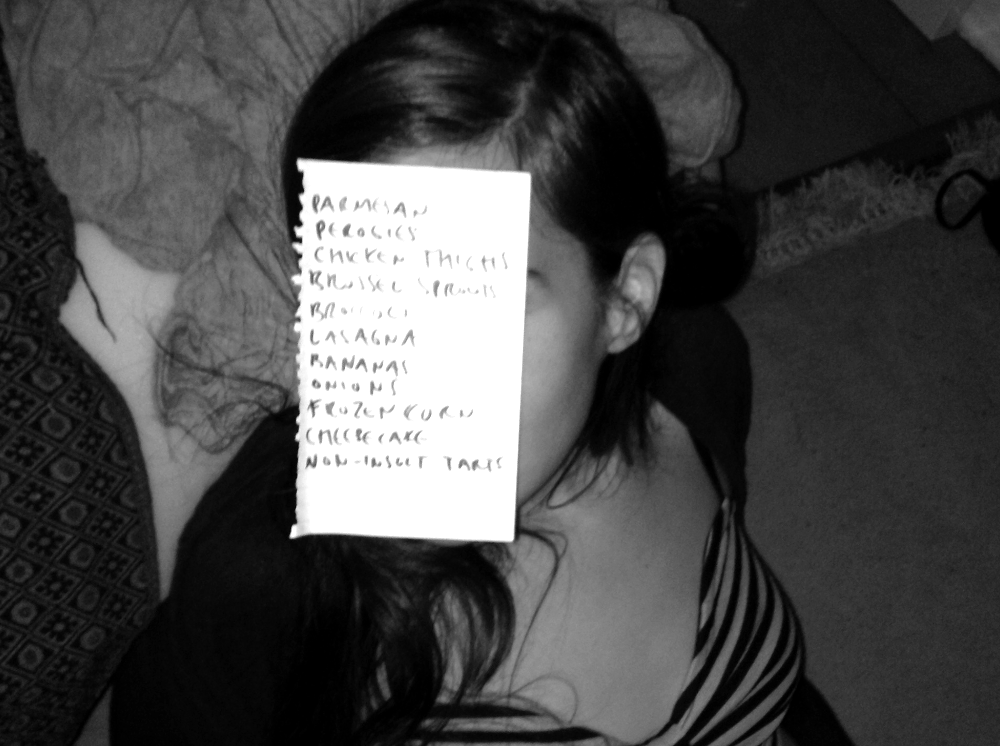 PARMESAN
PEROGIES
CHICKEN THIGHS
BRUSSEL SPROUTS
BROCOLI
LASAGNA
BANANAS
ONIONS
FROZEN CORN
CHEESECAKE
NON-INSECT TARTS